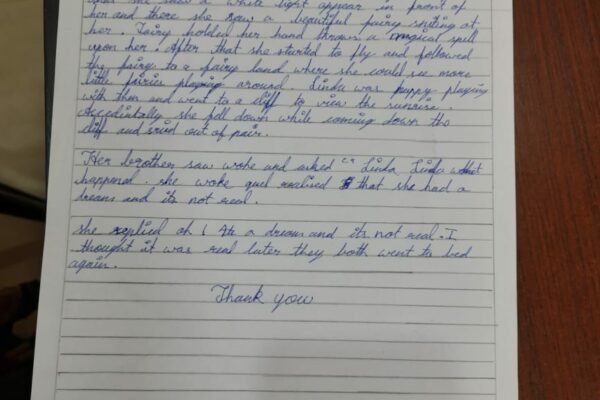 she saw a white light appear in front of
her and there she saw a beautiful fairy smiling at
her. Fairy holded her hand thrown a magical spell
upon her. After that she started to fly and followed
the fairy to a fairy land where she could see more
little fairies playing around. Linda was happy playing
with them and went to a cliff to view the sunrise.
Accedintally she fell down while coming down the
cliff and out of pain.
Her brothers saw woke and asked Linda, Linda what
happened she woke realised that she had a
dream and its not real.
she replied oh a dream and its not real. I
thought it was real later they both went to bed
again.
Thank you